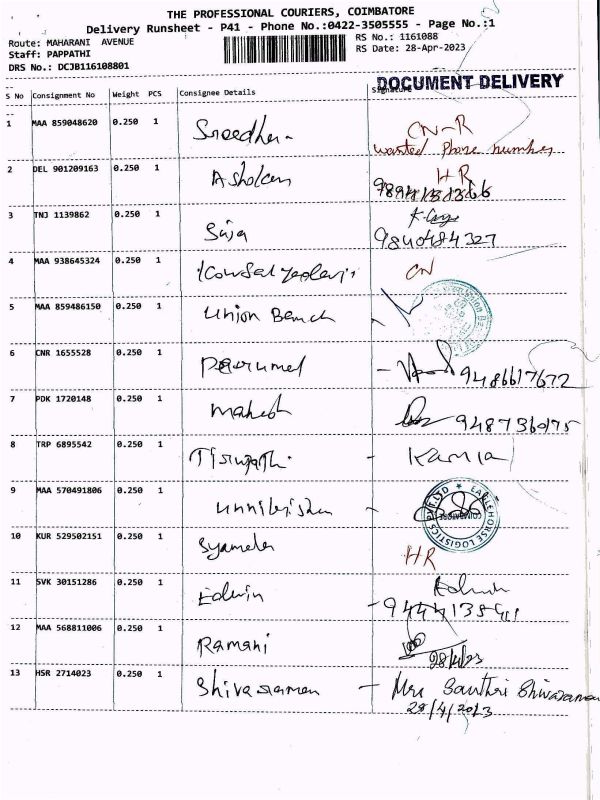 THE PROFESSIONAL COURIERS, COIMBATORE
Delivery Runsheet - P41 - Phone No.:0422-3505555 - Page No.:1
Route: MAHARANI AVENUE
RS No.: 1161088
Staff: PAPPATHI
RS Date: 28-Apr-2023
DRS No.: DCJB116108801
DOCUMENT DELIVERY
S No Consignment No Weight PCS Consignee Details Signature
1 MAA 859048620 0.250 1 Sreedhar CN-R
wanted phone number
2 DEL 901209163 0.250 1 Asholan HR
3 TNJ 1139862 0.250 1 Saja
9840484327
4 MAA 938645324 0.250 1 CN
5 MAA 859486150 0.250 1 Union Bank
6 CNR 1655528 0.250 1 Peerumal - 9486617672
7 PDK 1720148 0.250 1 Mahesh
8 TRP 6895542 0.250 1 Tirupathi - Kamla
9 MAA 570491806 0.250 1 Unnikrishnan - EAGLEHORSE LOGISTICS PVT LTD
10 KUR 529502151 0.250 1 Syamala HR
11 SVK 30151286 0.250 1 Edwin Edwin
12 MAA 568811006 0.250 1 Ramani
28/4/23
13 HSR 2714023 0.250 1 Shivaraman - Mrs Santhri Shivaraman
28/4/2023